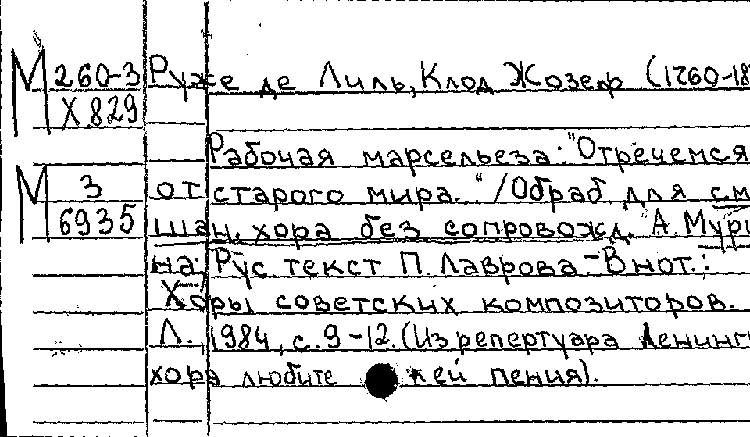 М 260-3 Руже де Лиль, Клод Жозеф (1760-18
Х 829
Рабочая марсельеза: "Отречемся
М 3 от старого мира." /Обраб. для см
6935 шан. хора без сопровожд. А. Мури
на. Рус. текст П. Лаврова - В нот.:
Хоры советских композиторов.
Л. 1984, с. 9-12. (Из репертуара Ленинг
хора любите лей пения).